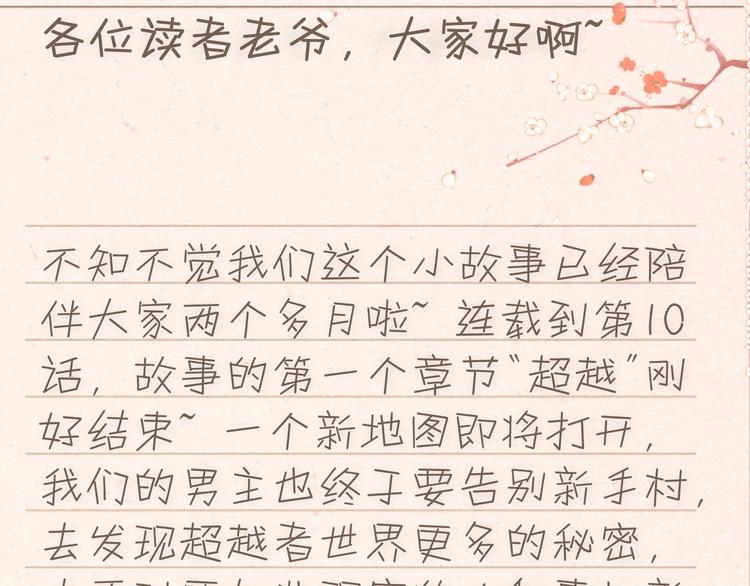 各位读者老爷，大家好啊~
不知不觉我们这个小故事已经陪
伴大家两个多月啦~ 连载到第10
话，故事的第一个章节“超越”刚
好结束~ 一个新地图即将打开，
我们的男主也终于要告别新手村，
去发现超越者世界更多的秘密，